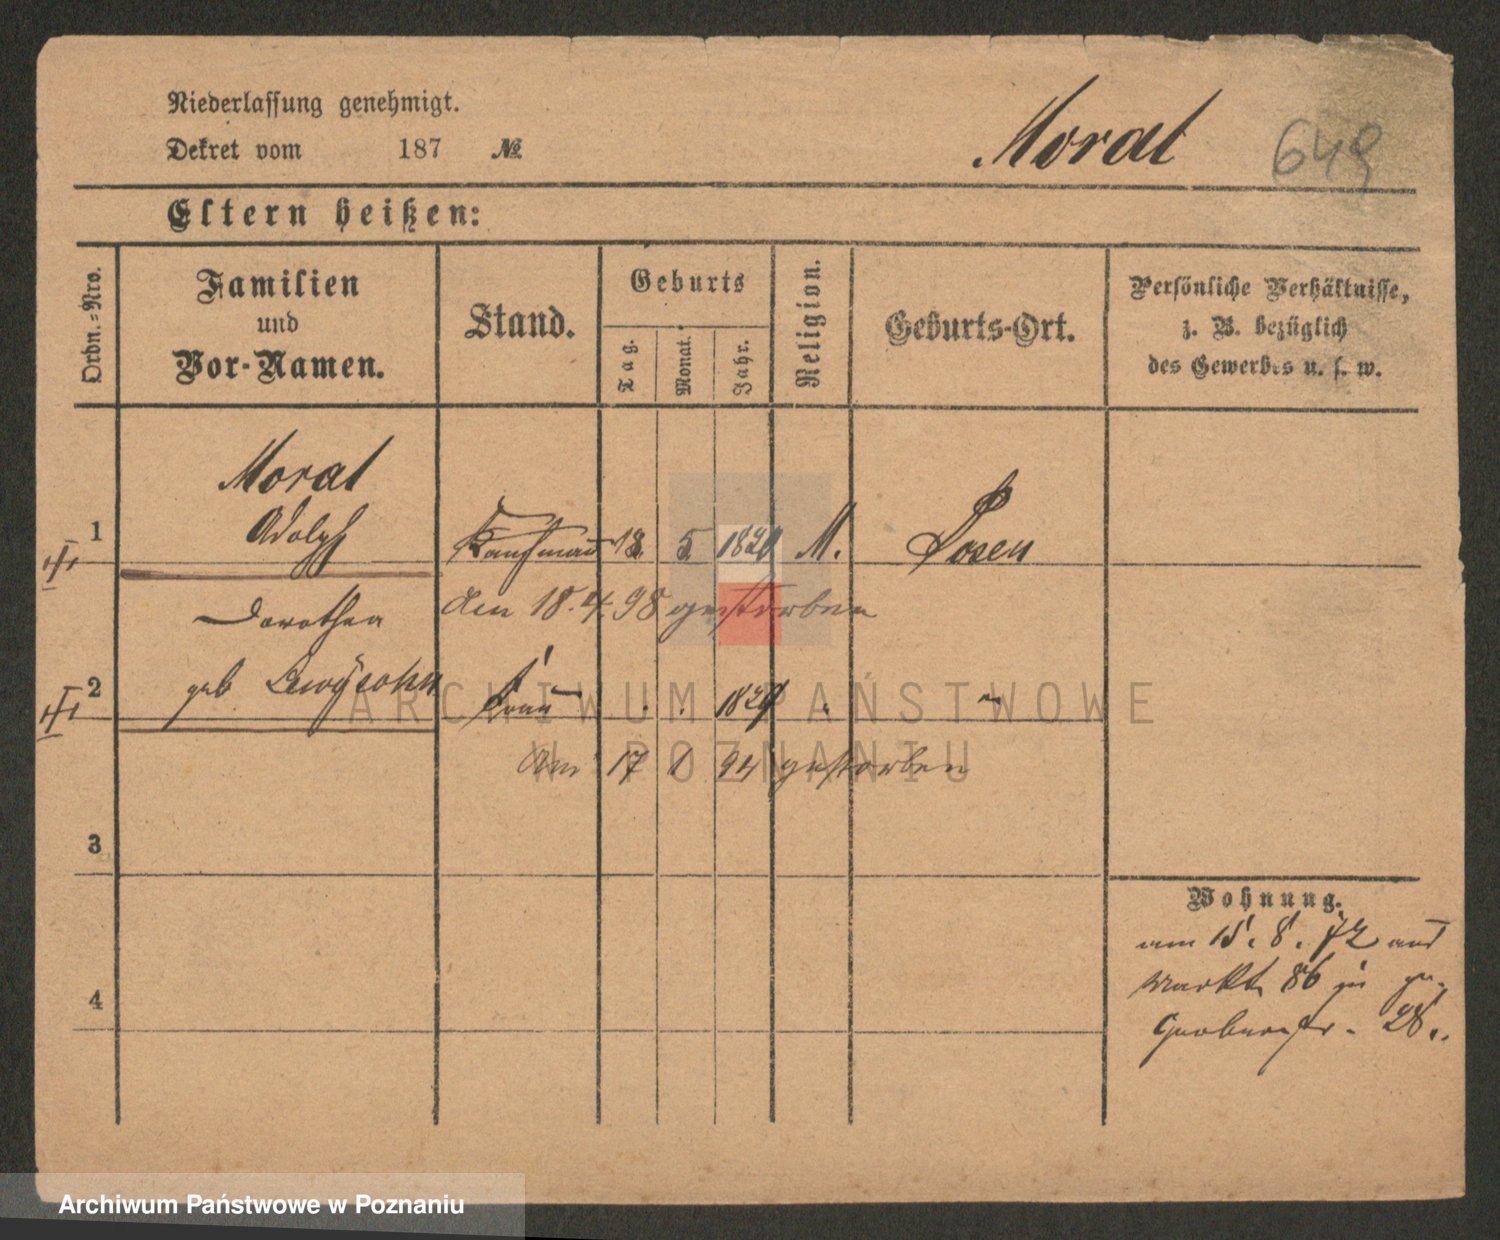 Niederlassung genehmigt.
Dekret vom 187 №
Morat
649
Eltern heißen:
Ordn.-Nro.
Familien
und
Vor-Namen.
Stand.
Geburts
Tag.
Monat.
Jahr.
Religion.
Geburts-Ort.
Persönliche Verhältnisse,
z. B. bezüglich
des Gewerbes u. s. w.
Morat
1 Adolph Kaufmann 18. 5. M. Posen
Dorothea am 18.4.98 gestorben
2 geb Lewysohn Frau
am 17 94 gestorben
3
4
Wohnung.
am 15. 8. 72 aus
Markt 86 zu
28.
ARCHIWUM PAŃSTWOWE
W POZNANIU
Archiwum Państwowe w Poznaniu